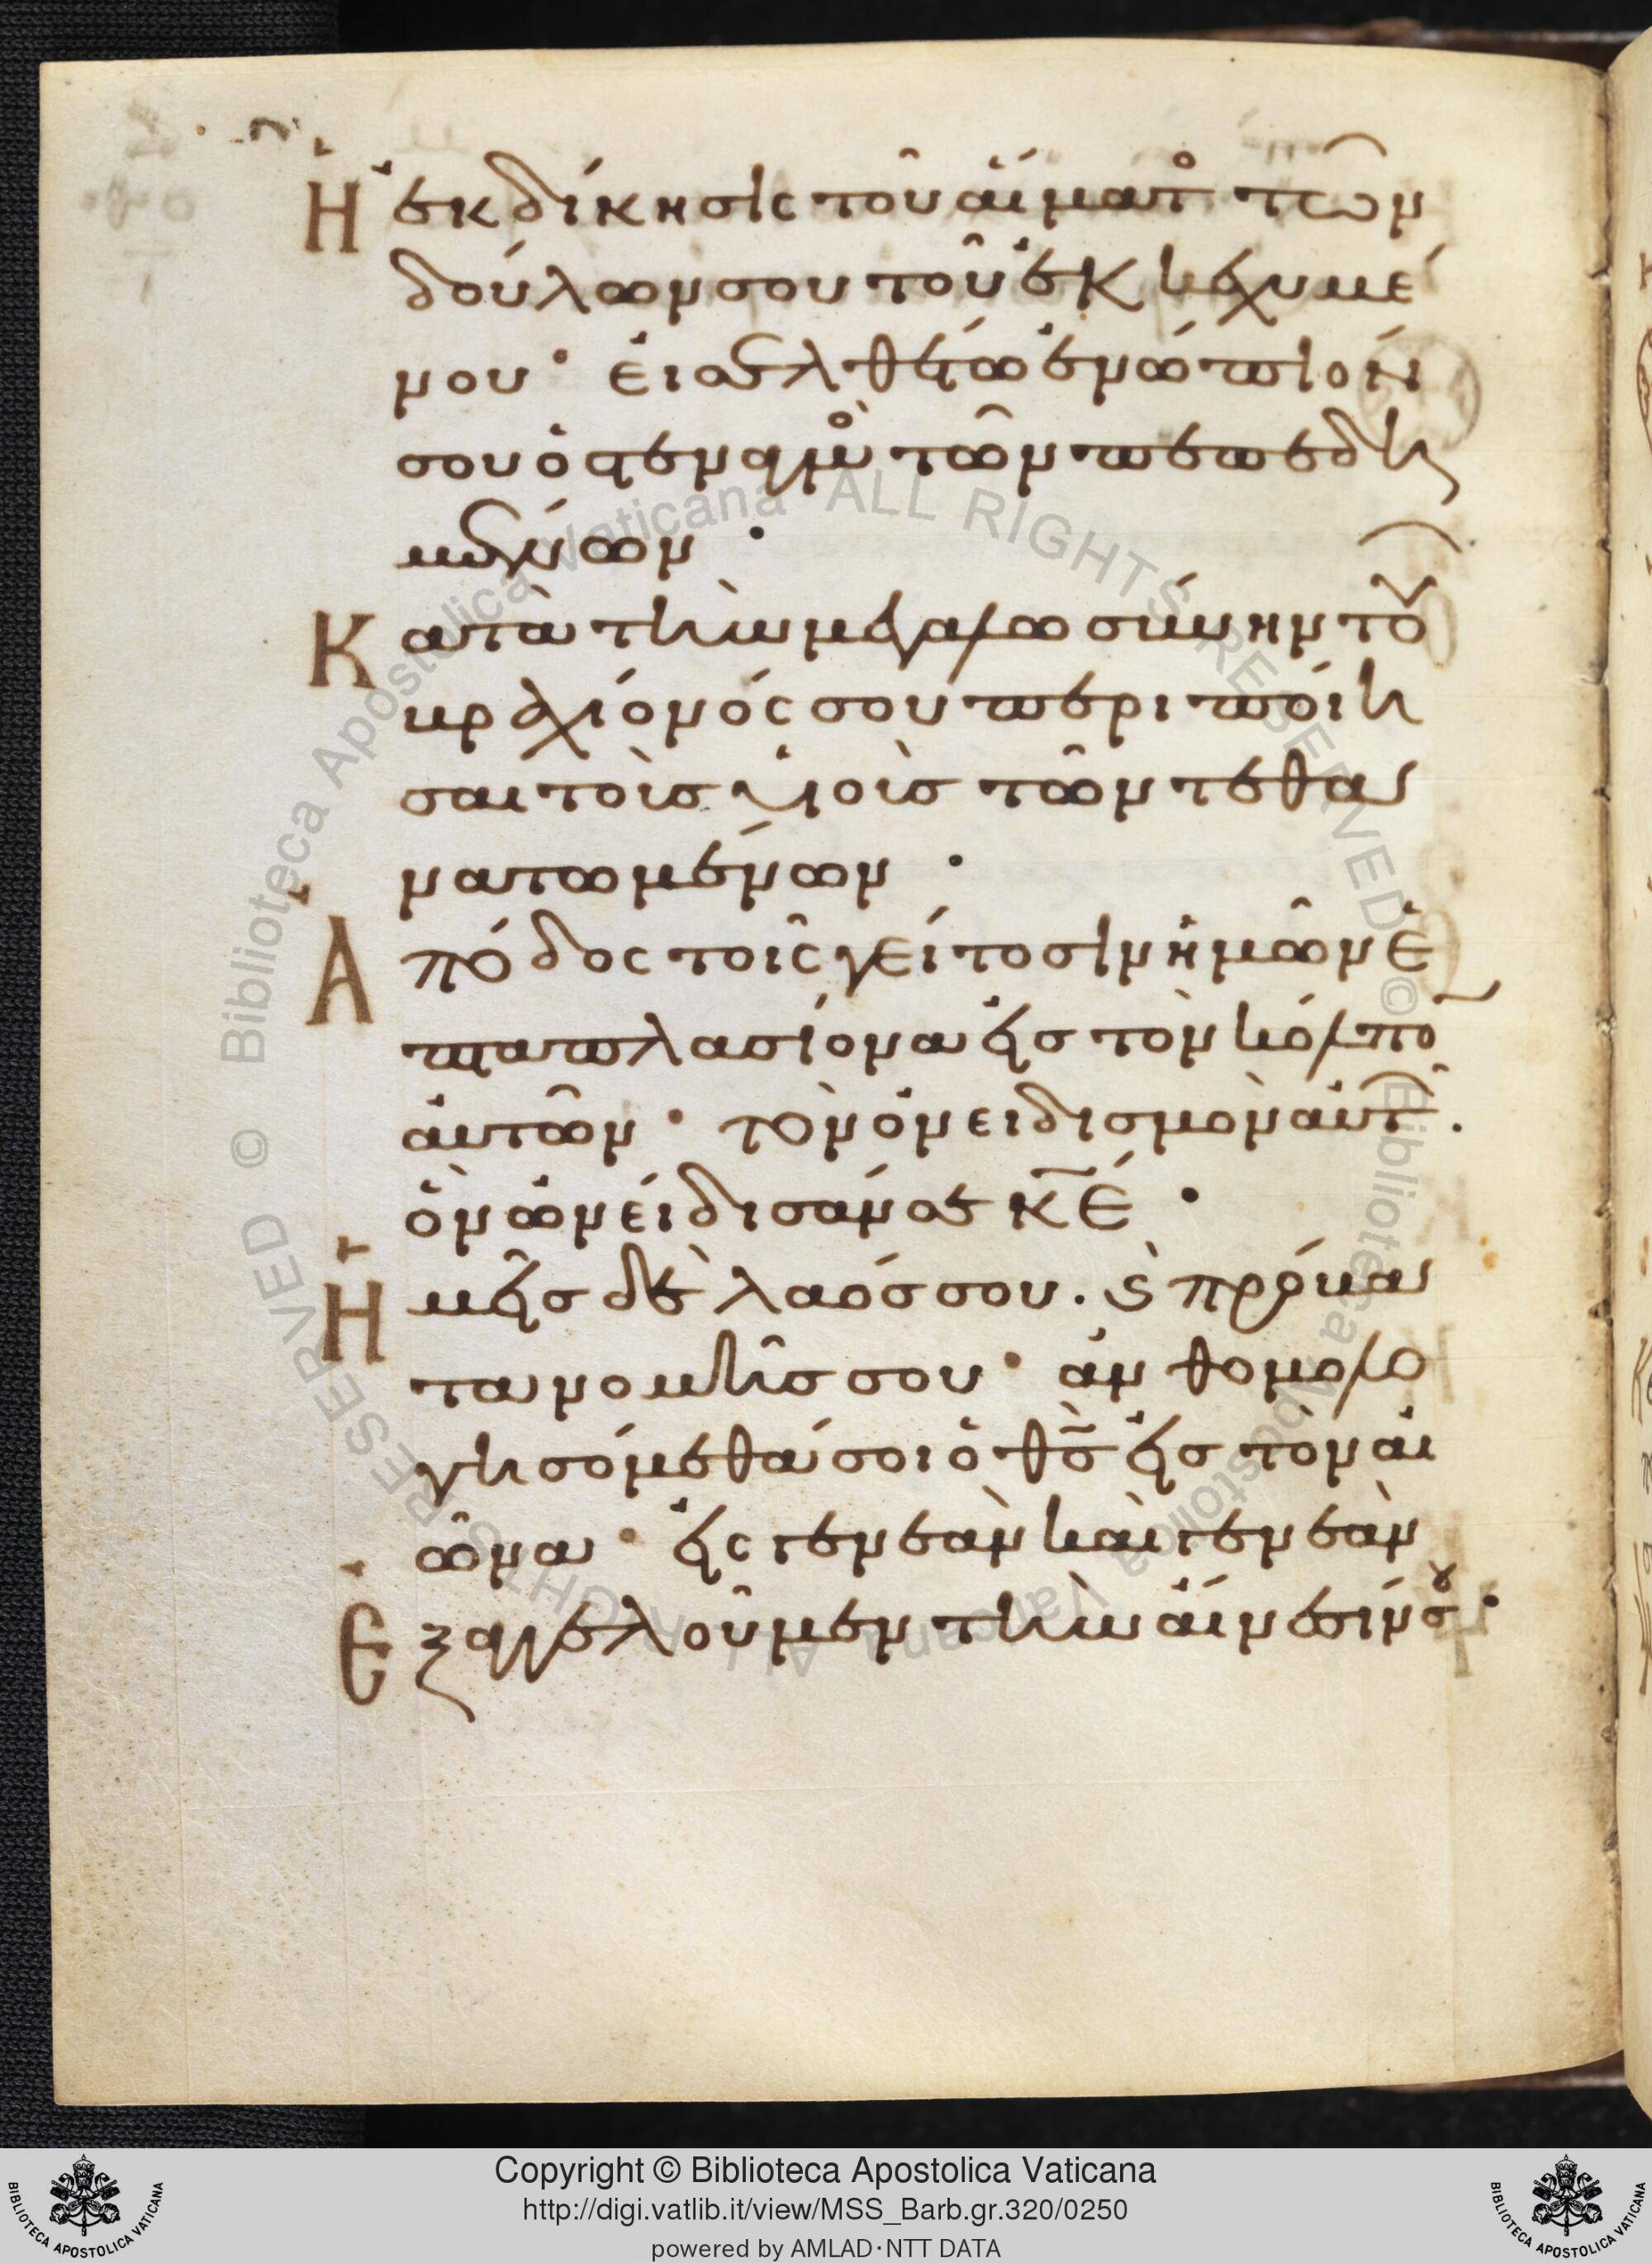 Ἡ ἐκδίκησις τοῦ αἵματ τῶν
δούλων σου τοῦ ἐκκεχυμέ
νου· εἰσελθέτω ἐνώπιόν
σου ὁ στεναγμὸ τῶν πεπεδη
μένων·
Κατὰ τὴν μεγαλωσύνην τοῦ
βραχίονός σου περιποίη
σαι τοὺς υἱοὺς τῶν τεθα
νατωμένων·
Ἀπόδος τοῖς γείτοσιν ἡμῶν ἑ
πταπλασίονα εἰς τὸν κόλπο
αὐτῶν· τὸν ὀνειδισμὸν αὐτ.
ὃν ὠνείδισάν σε κ̅ε̅·
Ἡμεῖς δὲ λαός σου. ϛ πρόβα
τα νομῆς σου· ἀνθομολο
γησόμεθά σοι ὁ θ̅ς̅ εἰς τὸν αἰ
ῶνα· εἰς γενεὰν καὶ γενεὰν
Ἐξαγγελοῦμεν τὴν αἴνεσίν σου·
Biblioteca Apostolica Vaticana ALL RIGHTS RESERVED © Biblioteca Apostolica Vaticana ALL RIGHTS RESERVED ©
Copyright © Biblioteca Apostolica Vaticana
http://digi.vatlib.it/view/MSS_Barb.gr.320/0250
powered by AMLAD·NTT DATA
BIBLIOTECA APOSTOLICA VATICANA
BIBLIOTECA APOSTOLICA VATICANA